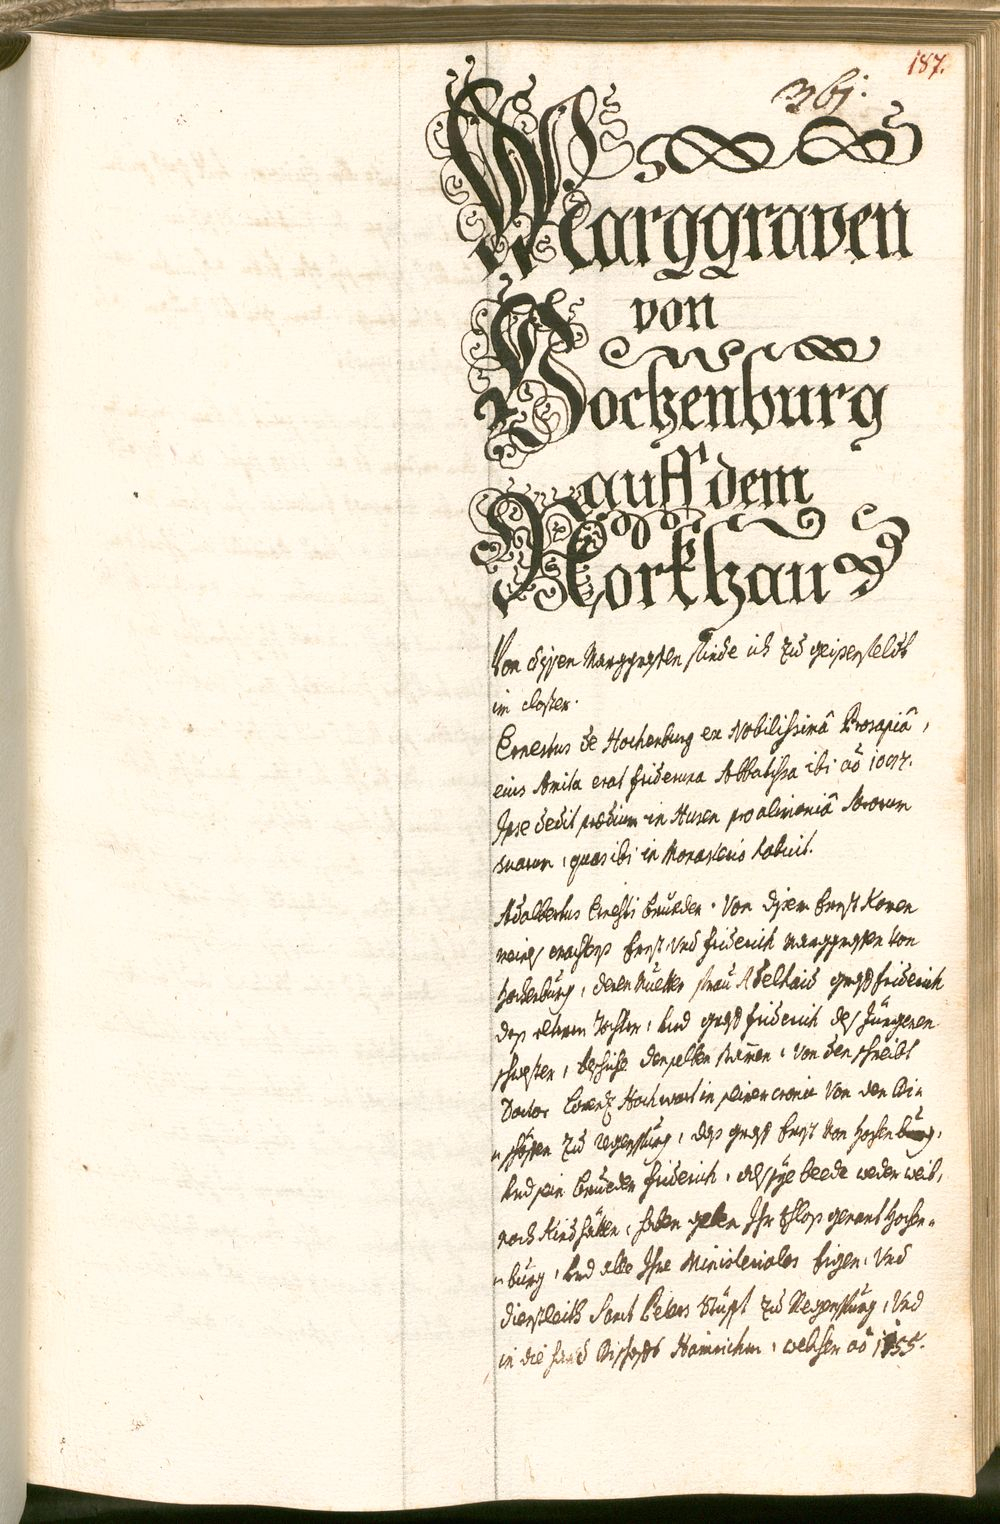 187.
36j.
Marggraven
von
Hochenburg
auff dem
Norkhau
Von disen Marggrafen finde ich zu geisenfeldt
im closter.
Ernestus de Hochenburg ex Nobilissimâ Prosapiâ,
eius Amita erat frideruna Abbatissa ibi aō 1097.
Ipse dedit prædium in Husen pro alimoniâ Sororum
suarum, quas ibi in Monasterio habuit.
Adalbertus Ernesti brueder. Von disem Ernst Komen
meines erachtes Ernst, Und friderich Marggrafen Von
Hochenburg, deren Mueter frau Adelhaid graf friderich
des eltern Tochter, Und graf friderich des Jüngeren
schwester, derselben Namen, Von den schreibt
Doctor Lorenz Hochwart in seiner cronic Von den Bi=
=schöfen zu regenspurg, das graf Ernst Von Hochenburg,
Und sein brueder friderich, als sye beede weder weib,
noch Kind hätten, haben geben Ihr schloss genant Hochen=
=burg, Und alle Ihre Ministeriales Eigen, Und
dienstleith Sanct Peters Stüfft zu Regenspurg, Und
in die hand Bischoffs Hainrichen, welcher aō 1155.